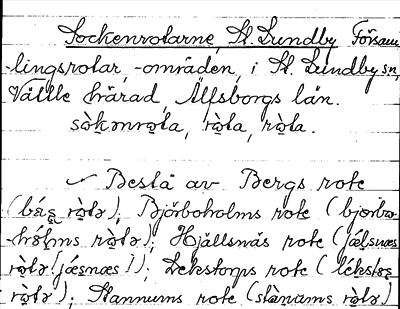 Sockenrotarne, St. Lundby Försam
-lingsrotar, -områden, i St. Lundby sn,
Vättle härad, Älfsborgs län.
sòkənrωta, ròta, ròta.
Bestå av Bergs rote
(bærs ròtə); Björboholms rote (bjorbo-
-hólms ròtə); Hjällsnäs rote (jælsnæs
ròtə [jæsnæs]); Lekstorps rote (
ròtə); Stannums rote (stànums ròtə)